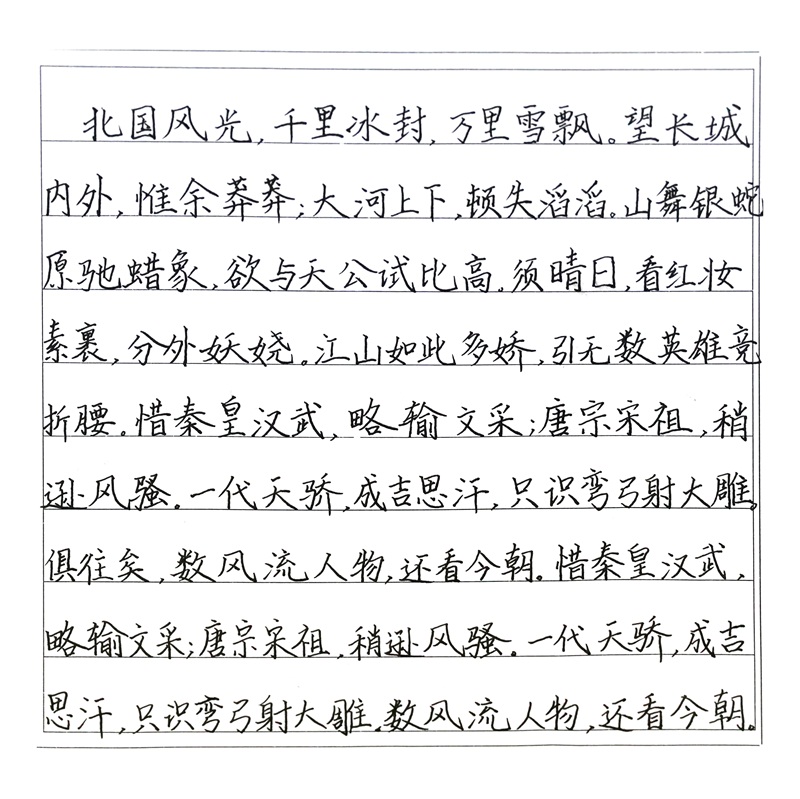 北国风光,千里冰封,万里雪飘。望长城
内外,惟余莽莽;大河上下,顿失滔滔。山舞银蛇
原驰蜡象,欲与天公试比高。须晴日,看红妆
素裹,分外妖娆。江山如此多娇,引无数英雄竞
折腰。惜秦皇汉武,略输文采;唐宗宋祖,稍
逊风骚。一代天骄,成吉思汗,只识弯弓射大雕。
俱往矣,数风流人物,还看今朝。惜秦皇汉武,
略输文采;唐宗宋祖,稍逊风骚。一代天骄,成吉
思汗,只识弯弓射大雕.数风流人物,还看今朝。